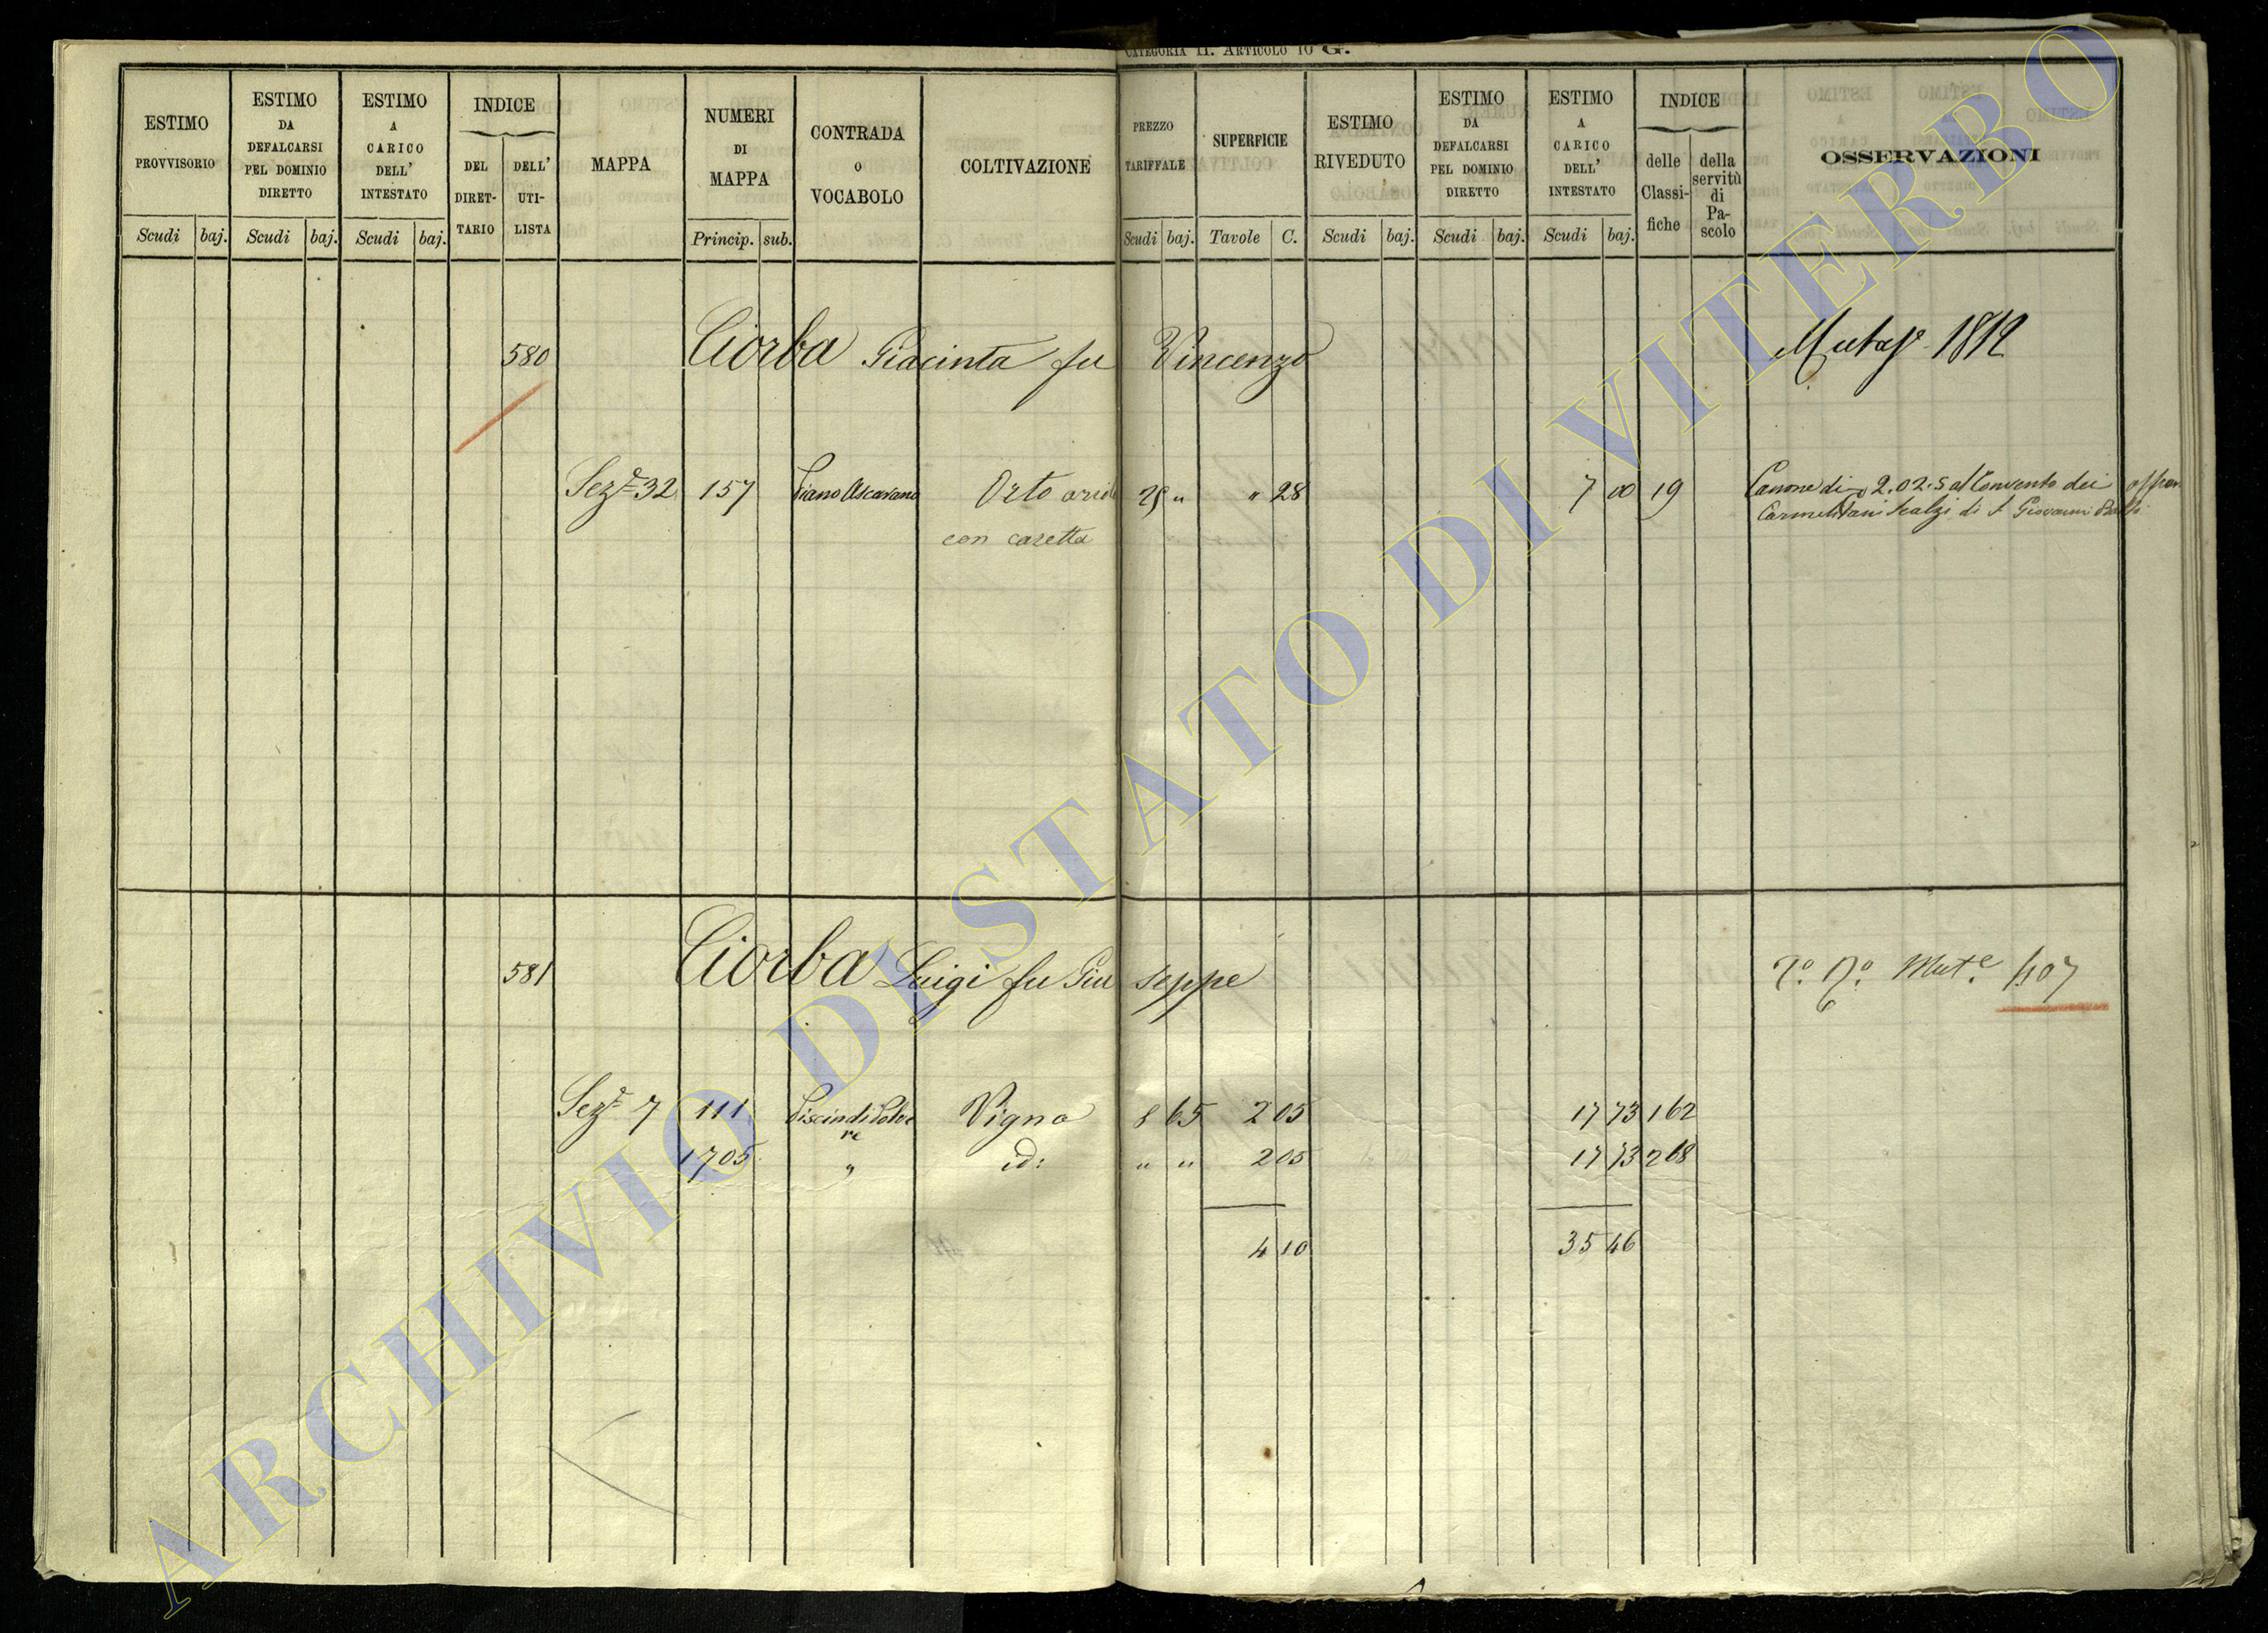 CATEGORIA II. ARTICOLO 10 G.
ESTIMO PROVVISORIO Scudi baj.
ESTIMO DA DEFALCARSI PEL DOMINIO DIRETTO Scudi baj.
ESTIMO A CARICO DELL' INTESTATO Scudi baj.
INDICE DEL DIRET-TARIO DELL' UTI-LISTA
MAPPA
NUMERI DI MAPPA Princip. sub.
CONTRADA o VOCABOLO
COLTIVAZIONE
PREZZO TARIFFALE Scudi baj.
SUPERFICIE Tavole C.
ESTIMO RIVEDUTO Scudi baj.
ESTIMO DA DEFALCARSI PEL DOMINIO DIRETTO Scudi baj.
ESTIMO A CARICO DELL' INTESTATO Scudi baj.
INDICE delle Classi-fiche della servitù di Pa-scolo
OSSERVAZIONI
580 Ciorba Giacinta fu Vincenzo 1812
Sez.e 32 157 Piano Ascarano Orto 25 " " 28 7 00 19 Canone di 2.02.5 al Convento dei
con casetta Carmelitani Scalzi di S. Giovanni
581 Ciorba Luigi fu Giu seppe Mut.e 1107
Sez.e 7 111 Vigna 8 65 2 05 17 73 162
re
1705 " id: " " 2 05 17 73 268
4 10 35 46
ARCHIVIO DI STATO DI VITERBO